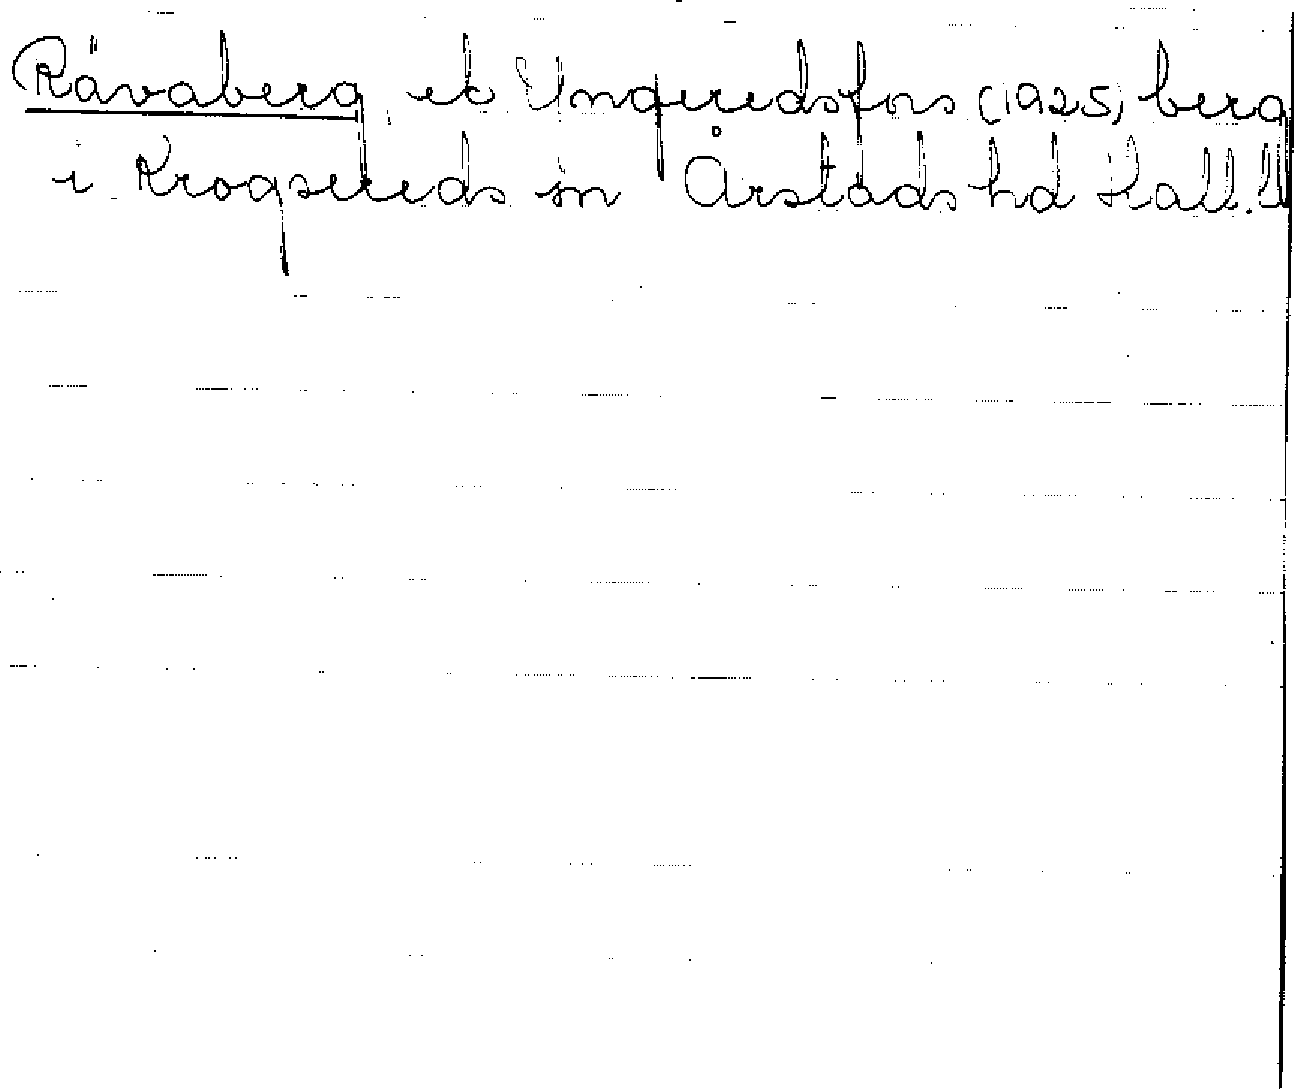 Rävaberg, ek Yngeredsfors (1925) berg
i Krogsereds sn Årstads hd Hall. l